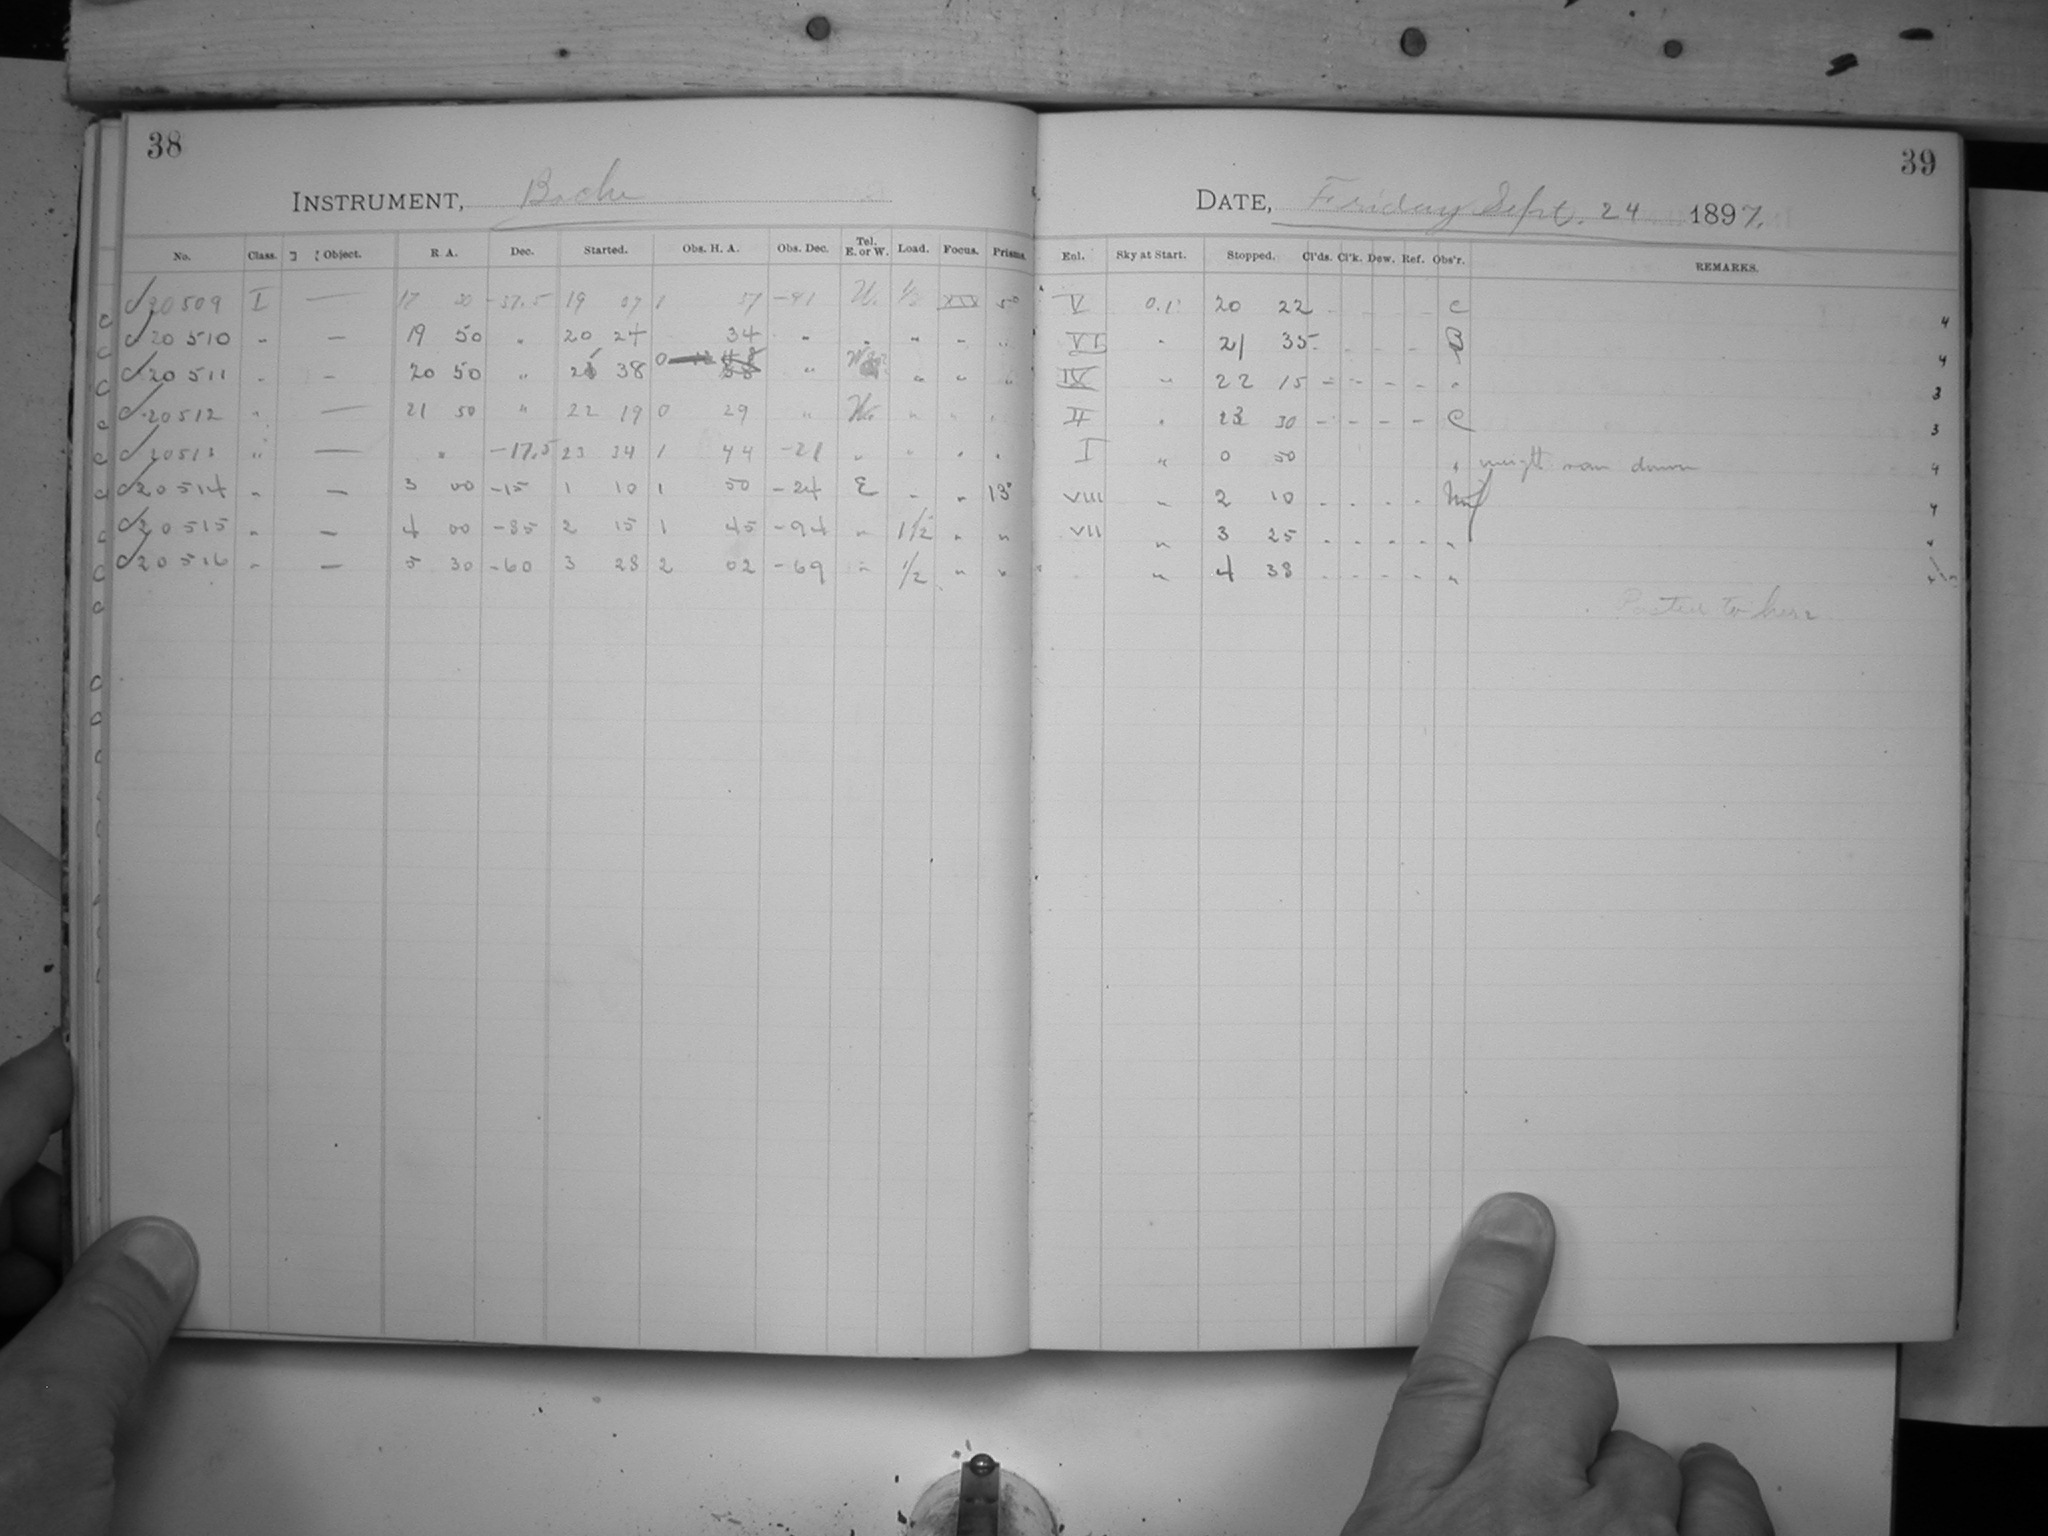 38
INSTRUMENT, Bache
No. Class. Object. R. A. Dec. Started. Obs. H. A. Obs. Dec. Tel. E. or W. Load. Focus. Prisms.
20509 I — 17 20 -37.5 19 07 1 37 -41 W. ½ XIX 5°
20510 " — 19 50 " 20 24 34 " " " " "
20511 " — 20 50 " 21 38 0 " " " "
20512 " — 21 50 " 22 19 0 29 " W. " " "
20513 " — " -17.5 23 34 1 44 -21 " " " "
20514 " — 3 00 -15 1 10 1 50 -24 E " " 13°
20515 " — 4 00 -85 2 15 1 45 -94 " 1½ " "
20516 " — 5 30 -60 3 28 2 02 -69 " ½ " "
39
DATE, Friday Sept. 24 1897.
Eol. Sky at Start. Stopped. Cl'ds. Cl'k. Dew. Ref. Obs'r. REMARKS.
V 0.1 20 22 - - - - C 4
VI " 21 35 - - - - B 4
IX " 22 15 - - - - " 3
II " 23 30 - - - - C 3
I " 0 50 " weight ran down 4
VIII " 2 10 - - - - 4
VII " 3 25 - - - - "
" 4 38 - - - - "
Posted to here